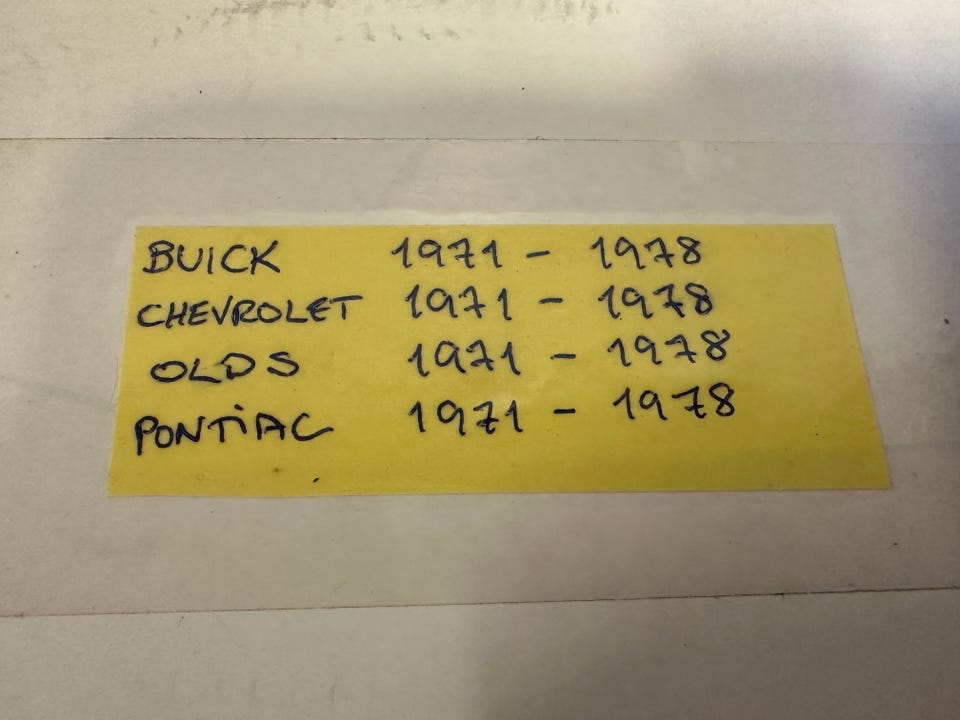 BUICK 1971 - 1978
CHEVROLET 1971 - 1978
OLDS 1971 - 1978
PONTiAC 1971 - 1978